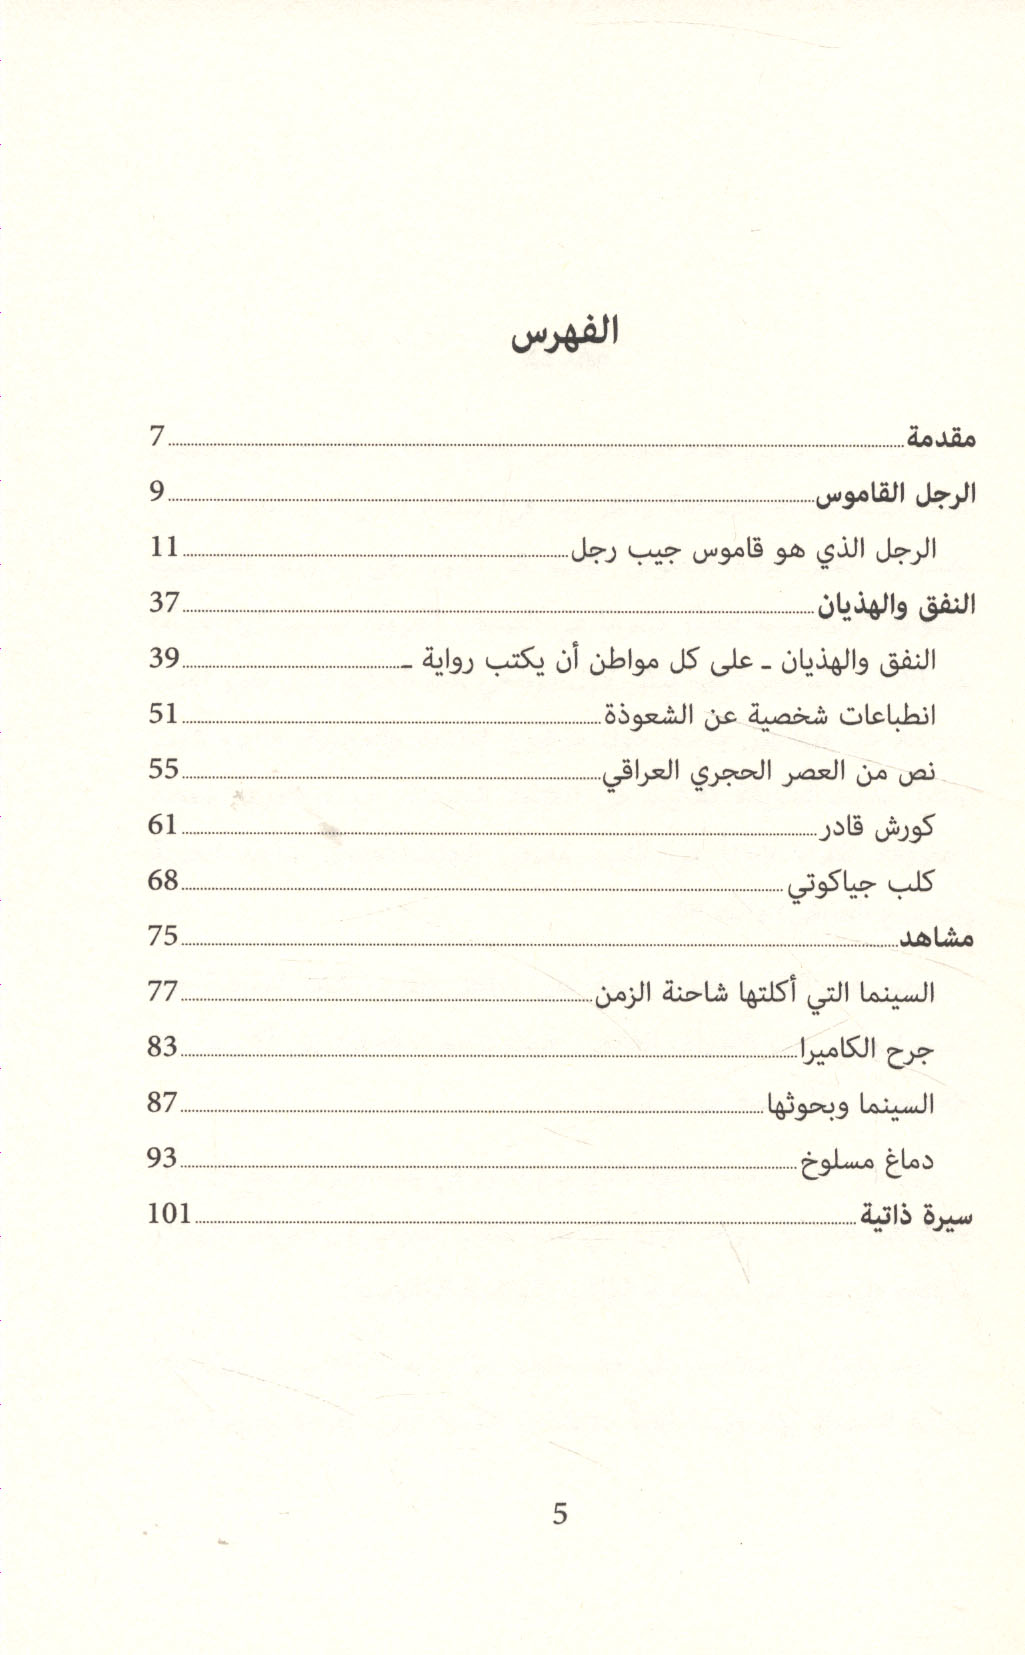 الفهرس
مقدمة 7
الرجل القاموس 9
الرجل الذي هو قاموس جيب رجل 11
النفق والهذيان 37
النفق والهذيان ـ على كل مواطن أن يكتب رواية ـ 39
انطباعات شخصية عن الشعوذة 51
نص من العصر الحجري العراقي 55
كورش قادر 61
كلب جياكوتي 68
مشاهد 75
السينما التي أكلتها شاحنة الزمن 77
جرح الكاميرا 83
السينما وبحوثها 87
دماغ مسلوخ 93
سيرة ذاتية 101
5